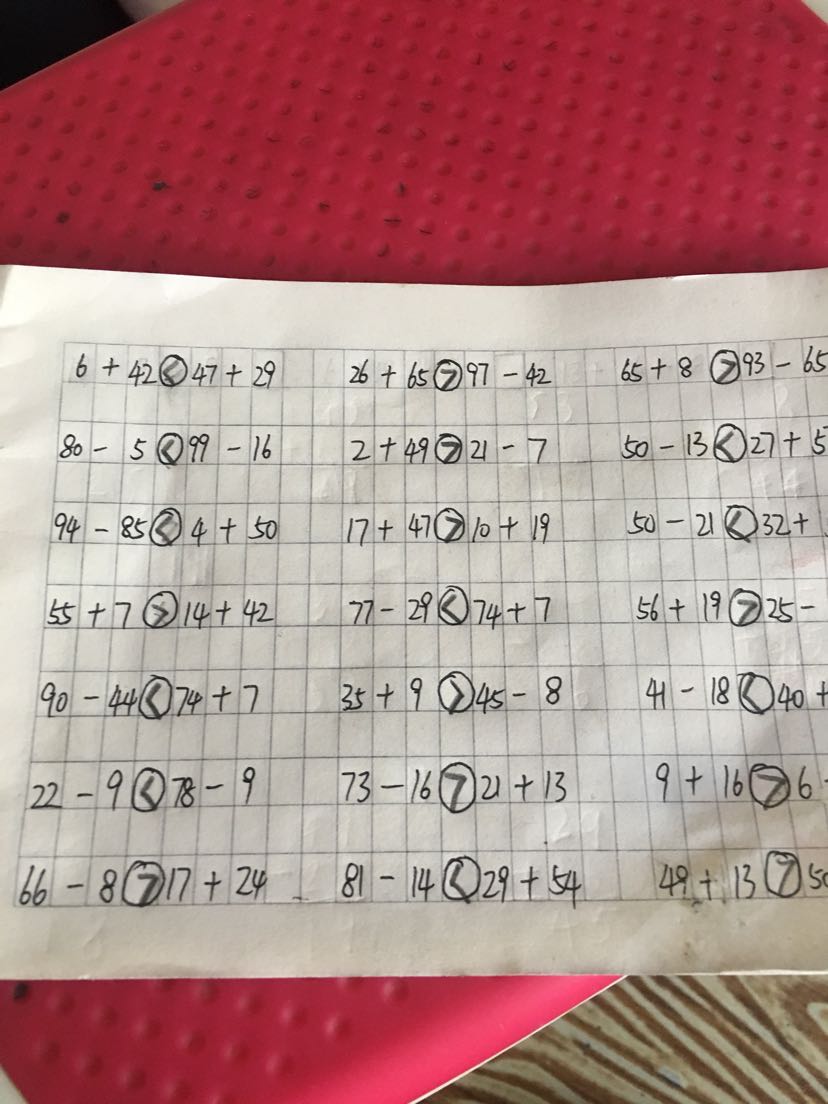 6 + 42 < 47 + 29 26 + 65 > 97 - 42 65 + 8 > 93 - 65
80 - 5 < 99 - 16 2 + 49 > 21 - 7 50 - 13 < 27 + 5
94 - 85 < 4 + 50 17 + 47 > 10 + 19 50 - 21 < 32 +
55 + 7 > 14 + 42 77 - 29 < 74 + 7 56 + 19 > 25 -
90 - 44 < 74 + 7 35 + 9 > 45 - 8 41 - 18 < 40 +
22 - 9 < 78 - 9 73 - 16 > 21 + 13 9 + 16 > 6
66 - 8 > 17 + 24 81 - 14 < 29 + 54 49 + 13 > 50